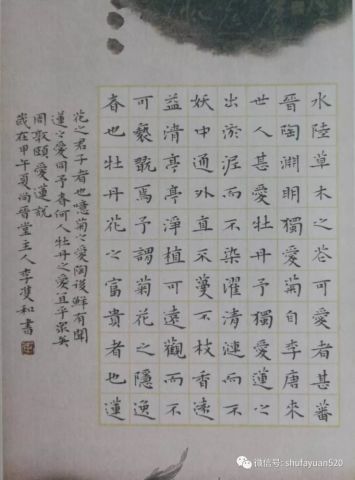 水陸草木之花可愛者甚蕃
晉陶淵明獨愛菊自李唐來
世人甚愛牡丹予獨愛蓮之
出淤泥而不染濯清漣而不
妖中通外直不蔓不枝香遠
益清亭亭淨植可遠觀而不
可褻翫焉予謂菊花之隱逸
者也牡丹花之富貴者也蓮
花之君子者也噫菊之愛陶後鮮有聞
蓮之愛同予者何人牡丹之愛宜乎眾矣
周敦頤愛蓮說
歲在甲午夏尚晉堂主人李雙和書
微信号: shufayuan520